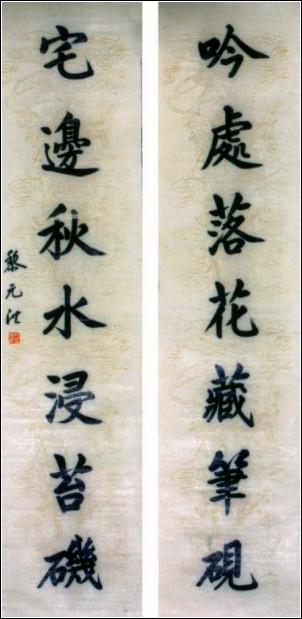 吟處落花藏筆硯
宅邊秋水浸苔磯
黎元洪